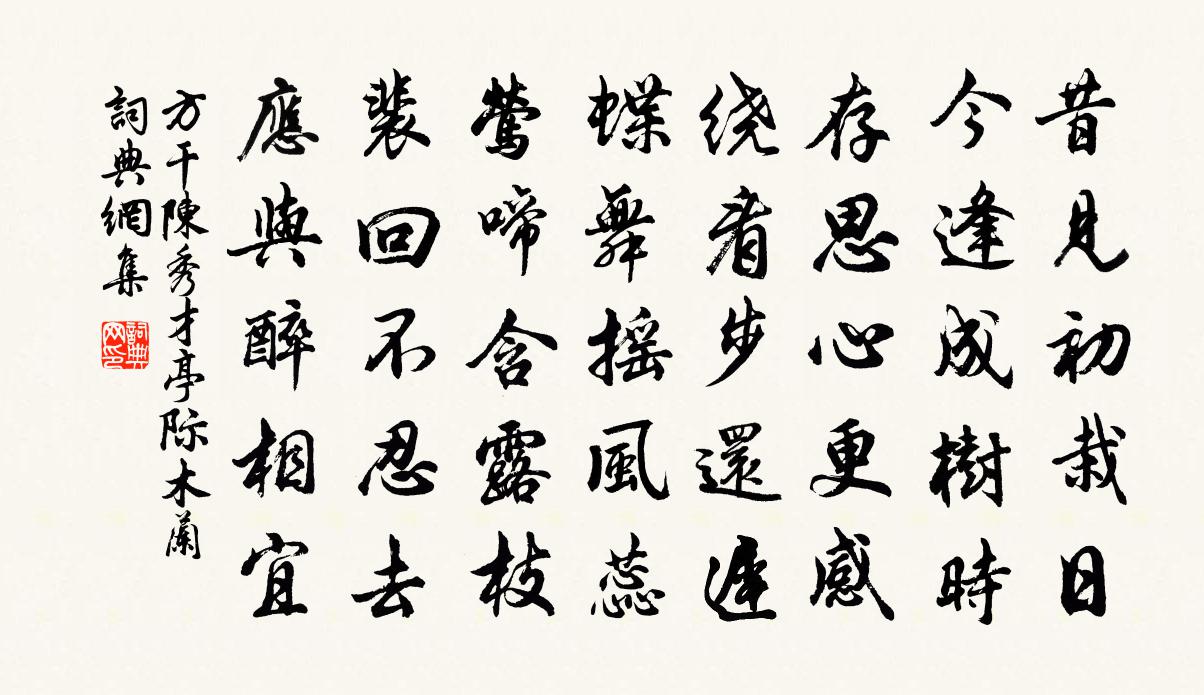 昔見初栽日
今逢成樹時
存思心更感
绕看步還遲
蝶舞摇風蕊
鶯啼含露枝
裴回不忍去
應與醉相宜
方干陳秀才亭际木蘭
詞典網集
詞典网印